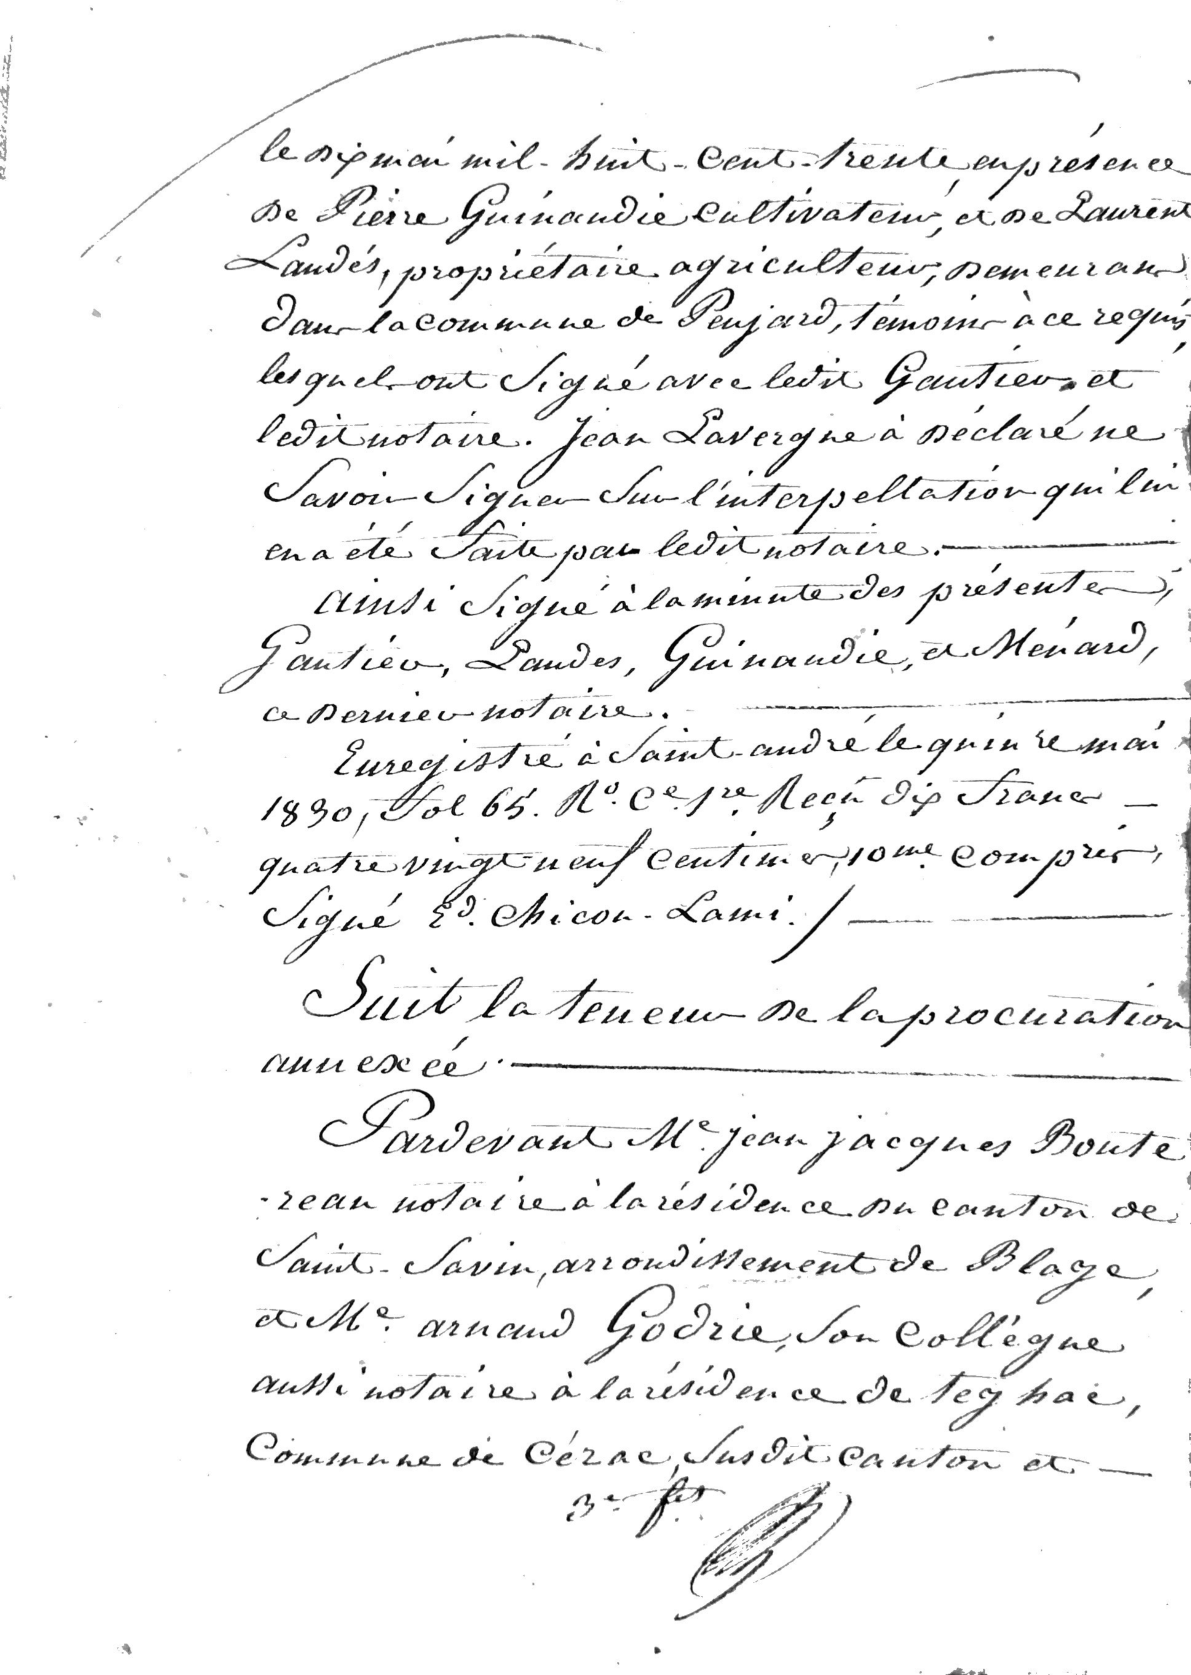 le dix mai mil-huit-cent-trente, en présence
de Pierre Guinaudie cultivateur, et de Laurent
Landés, propriétaire agriculteur, demeurans
dans la commune de Peujard, témoins à ce requis,
lesquels ont signé avec ledit Gautier et
ledit notaire. Jean Lavergne à déclaré ne
savoir signer sur l'interpellation qui lui
en a été faite par ledit notaire.
Ainsi signé à la minute des présentes,
Gautier, Landes, Guinaudie, et Ménard,
ce dernier notaire.
Enregistré à Saint-andré le quinze mai
1830, fol 65. Ro. Ce. 1re. Reçu dix francs
quatre vingt neuf centimes, 10me compris,
Signé Ed. Chicou-Lami./
Suit la teneur de la procuration
annexéé
Pardevant Me. jean jacques Boute
-reau notaire à la résidence du canton de
Saint-Savin, arrondissement de Blaye,
et Me. arnaud Godrie, son collègue
aussi notaire à la résidence de
Commune de Cézac, susdit canton et
3e